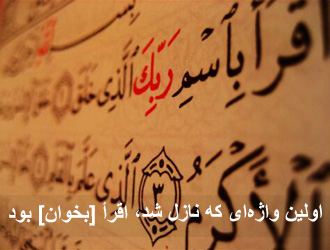 بِسْمِ
اقْرَأْ بِاسْمِ رَبِّكَ الَّذِي خَلَقَ
الْأَكْرَمُ ۝٣ الَّذِي عَلَّمَ
اولین واژه‌ای که نازل شد، اقرأ [بخوان] بود